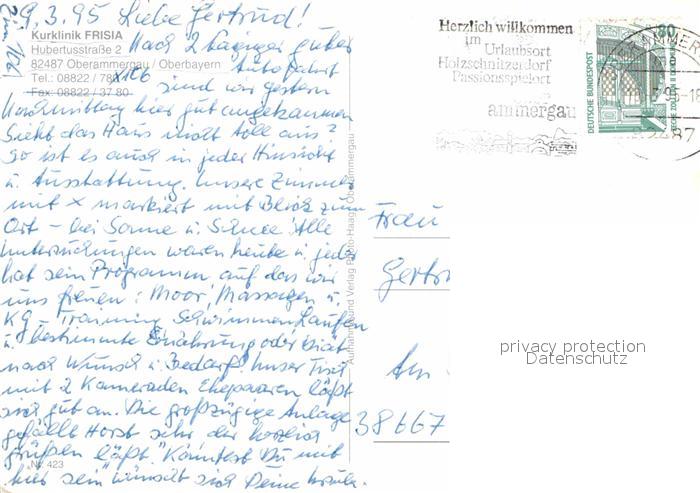 9.3.95 Liebe Gertrud!
Kurklinik FRISIA
Hubertusstraße 2
82487 Oberammergau / Oberbayern
Tel.: 08822 / 78
Fax: 08822 / 37 80
Nach 2 tägiger guter
Autofahrt
sind wir gestern
Nachmittag hier gut angekommen
Sieht das Haus nicht toll aus?
So ist es auch in jeder Hinsicht
u. Ausstattung. Unsere Zimmer
mit x markiert mit Blick zum
Ort – bei Sonne u. Schnee! Alle
Untersuchungen waren heute u. jeder
hat sein Programm auf das wir
uns freuen: Moor, Massagen u.
KG – Training Schwimmen, Laufen
u. bestimmte Ernährung oder Diät
nach Wunsch u. Bedarf. Unser Tisch
mit 2 Kameraden Ehepaaren läßt
sich gut an. Die großzügige Anlage
gefällt Horst sehr der herzlich
grüßen läßt. "Könntest Du mit
hier sein" wünscht sich Deine Ursula.
Nr. 423
Aufnahme und Verlag Foto-Haag, Oberammergau
Herzlich willkommen
im
Urlaubsort
Holzschnitzerdorf
Passionsspielort
ammergau
DEUTSCHE BUNDESPOST
80
Frau
Gertr
Am
38667
privacy protection
Datenschutz